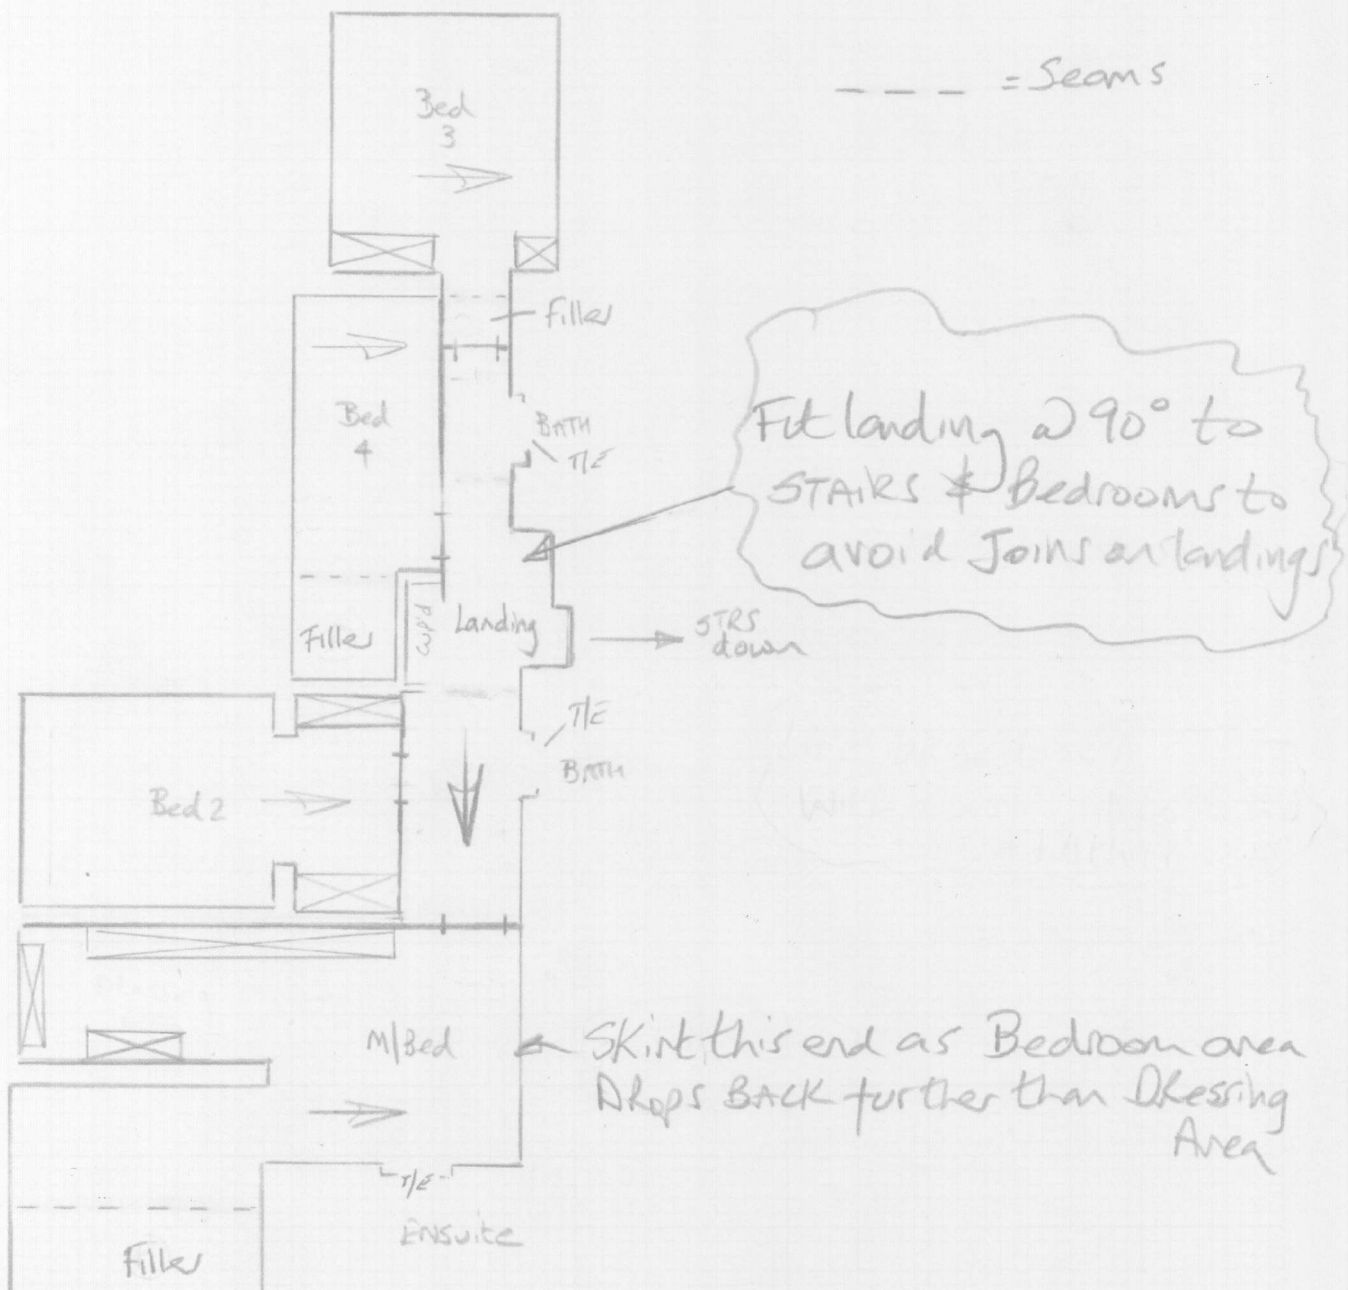 Bed
3
- - - - = Seams
Filler
Bed
4
BATH
T/E
Fit landing @ 90° to
STAIRS & Bedrooms to
avoid Joins on landings
Filler
Cupd
Landing
STRS
down
T/E
BATH
Bed 2
M/Bed
this end as Bedroom area
DRops BACK further than DRessing
Area
T/E
ENSuite
Filler